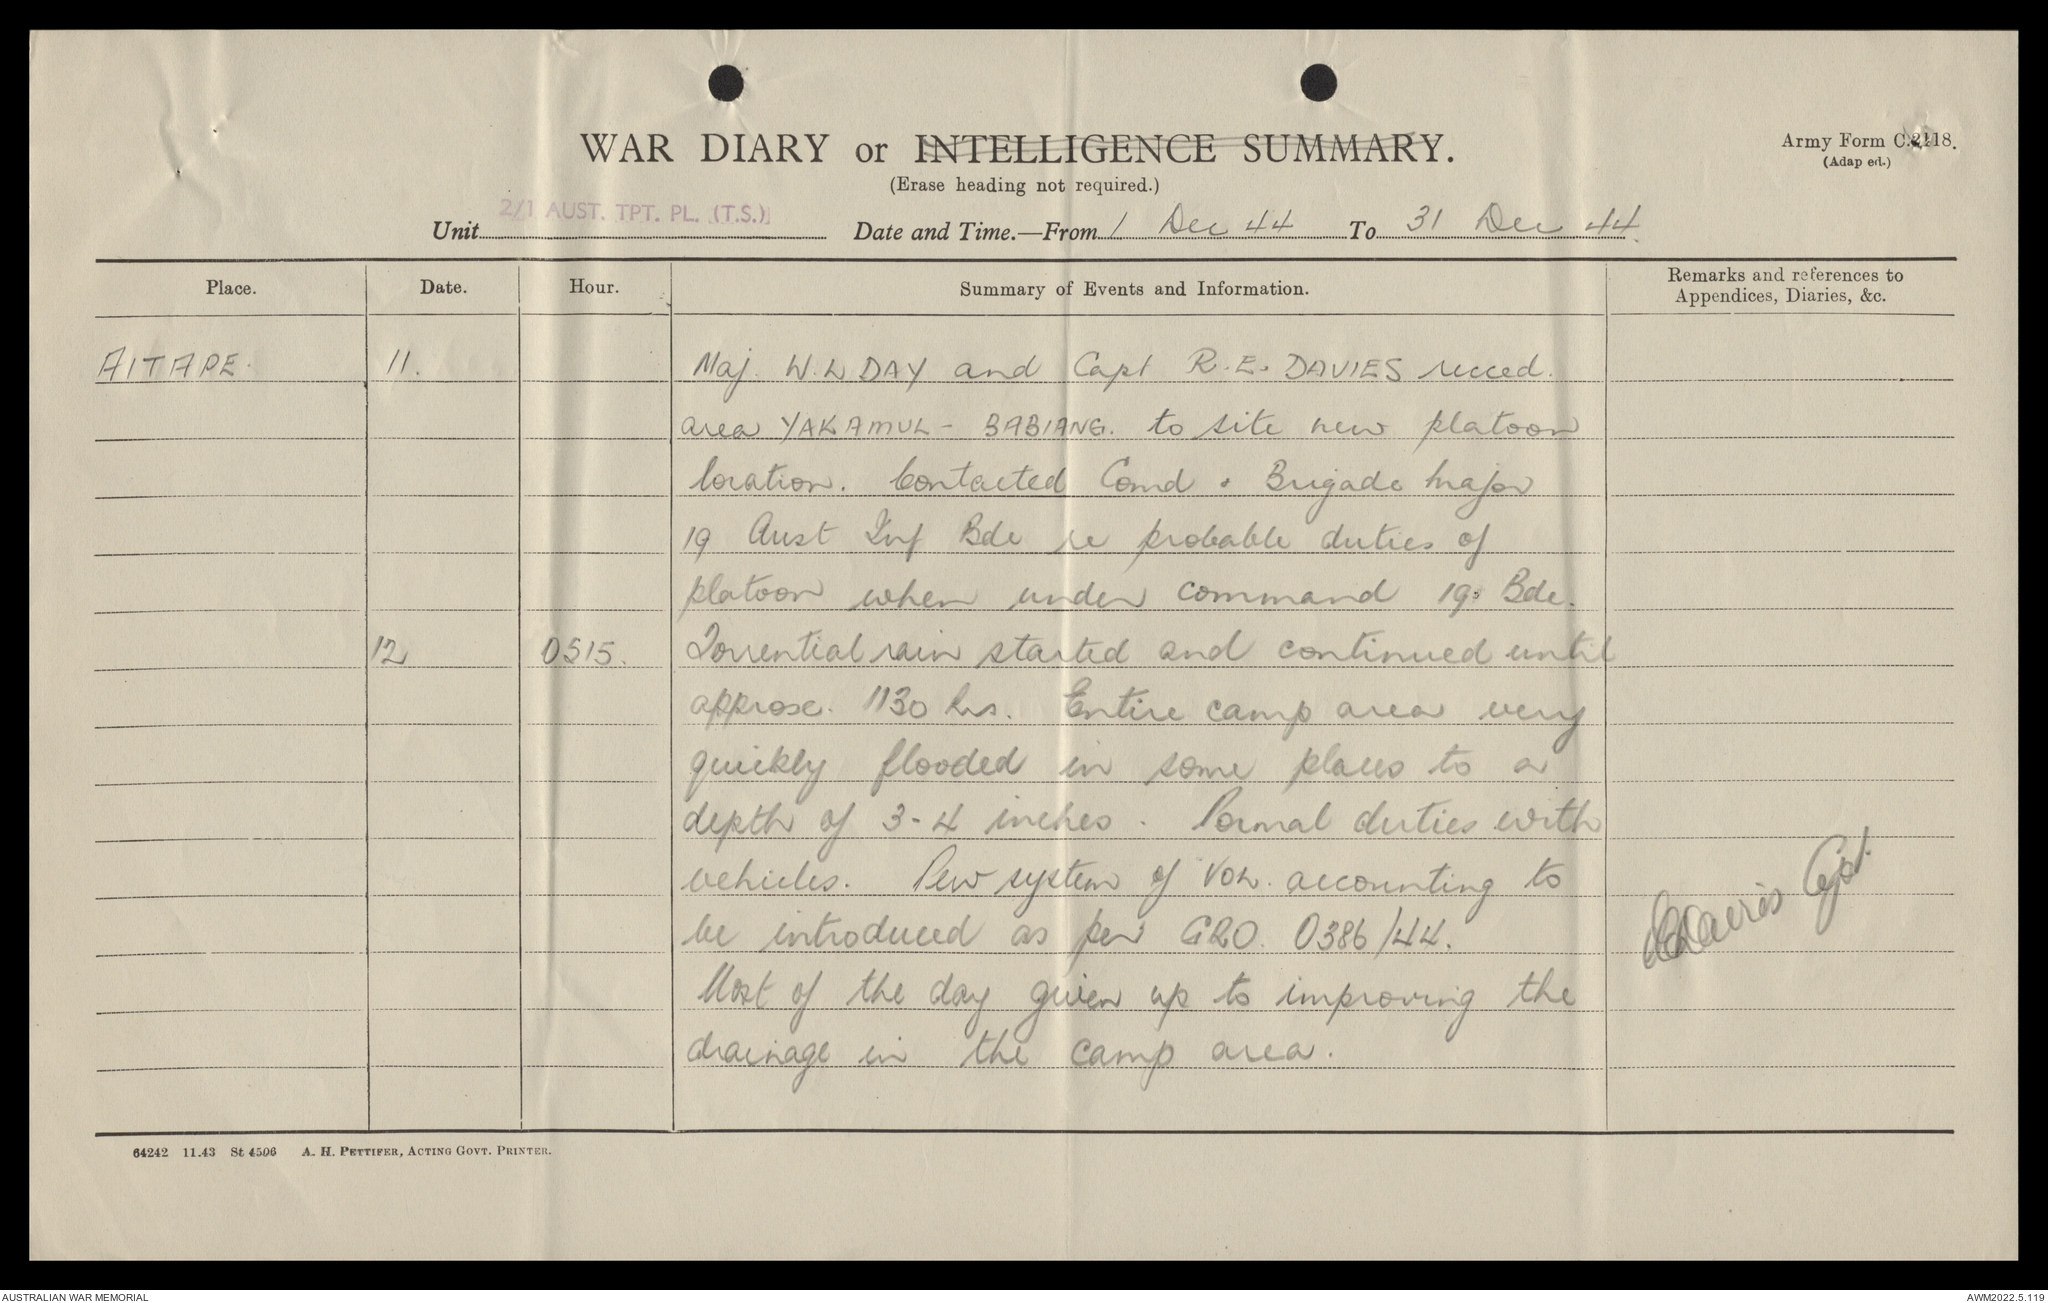 WAR DIARY or INTELLIGENCE SUMMARY.
Army Form C.2118.
(Adap ed.)
(Erase heading not required.)
Unit 2/1 AUST. TPT. PL. (T.S.) Date and Time.—From 1 Dec 44 To 31 Dec 44.
Place. Date. Hour. Summary of Events and Information. Remarks and references to
Appendices, Diaries, &c.
AITAPE. 11. Maj. W.L DAY and Capt R.E. DAVIES recced.
area YAKAMUL - BABIANG. to site new platoon
location. Contacted Comd & Brigade Major
19 Aust Inf Bde re probable duties of
platoon when under command 19 Bde.
12 0515. Torrential rain started and continued until
approx. 1130 hrs. Entire camp area very
quickly flooded in some places to a
depth of 3-4 inches. Normal duties with
vehicles. New system of VOL. accounting to
be introduced as per GRO. 0386/44.
Most of the day given up to improving the
drainage in the camp area.
REDavies Capt.
64242 11.43 St 4506 A. H. PETTIFER, ACTING GOVT. PRINTER.
AUSTRALIAN WAR MEMORIAL
AWM2022.5.119